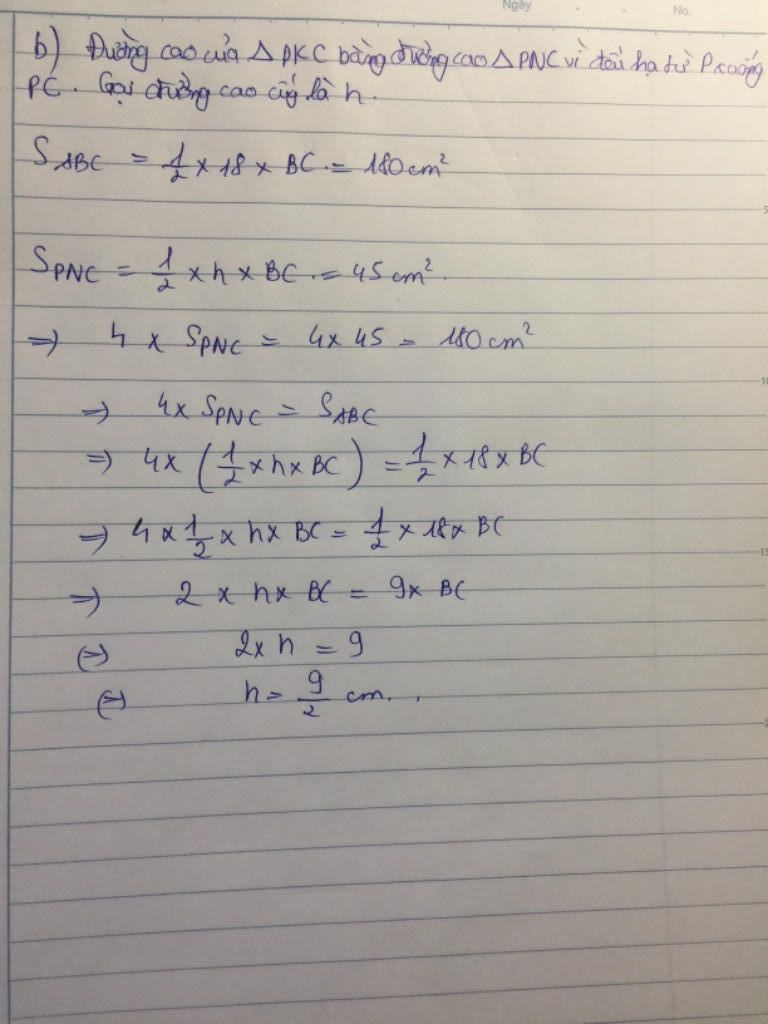 Ngày
No.
b) Đường cao của △ PKC bằng đường cao △ PNC vì đều hạ từ P xuống
PC. Gọi đường cao ấy là h.
S ABC = 1/2 x 18 x BC = 180 cm²
5
S PNC = 1/2 x h x BC = 45 cm².
=> 4 x S PNC = 4 x 45 = 180 cm²
10
=> 4 x S PNC = S ABC
=> 4 x (1/2 x h x BC) = 1/2 x 18 x BC
=> 4 x 1/2 x h x BC = 1/2 x 18 x BC
15
=> 2 x h x BC = 9 x BC
(=>) 2 x h = 9
(=>) h = 9/2 cm.